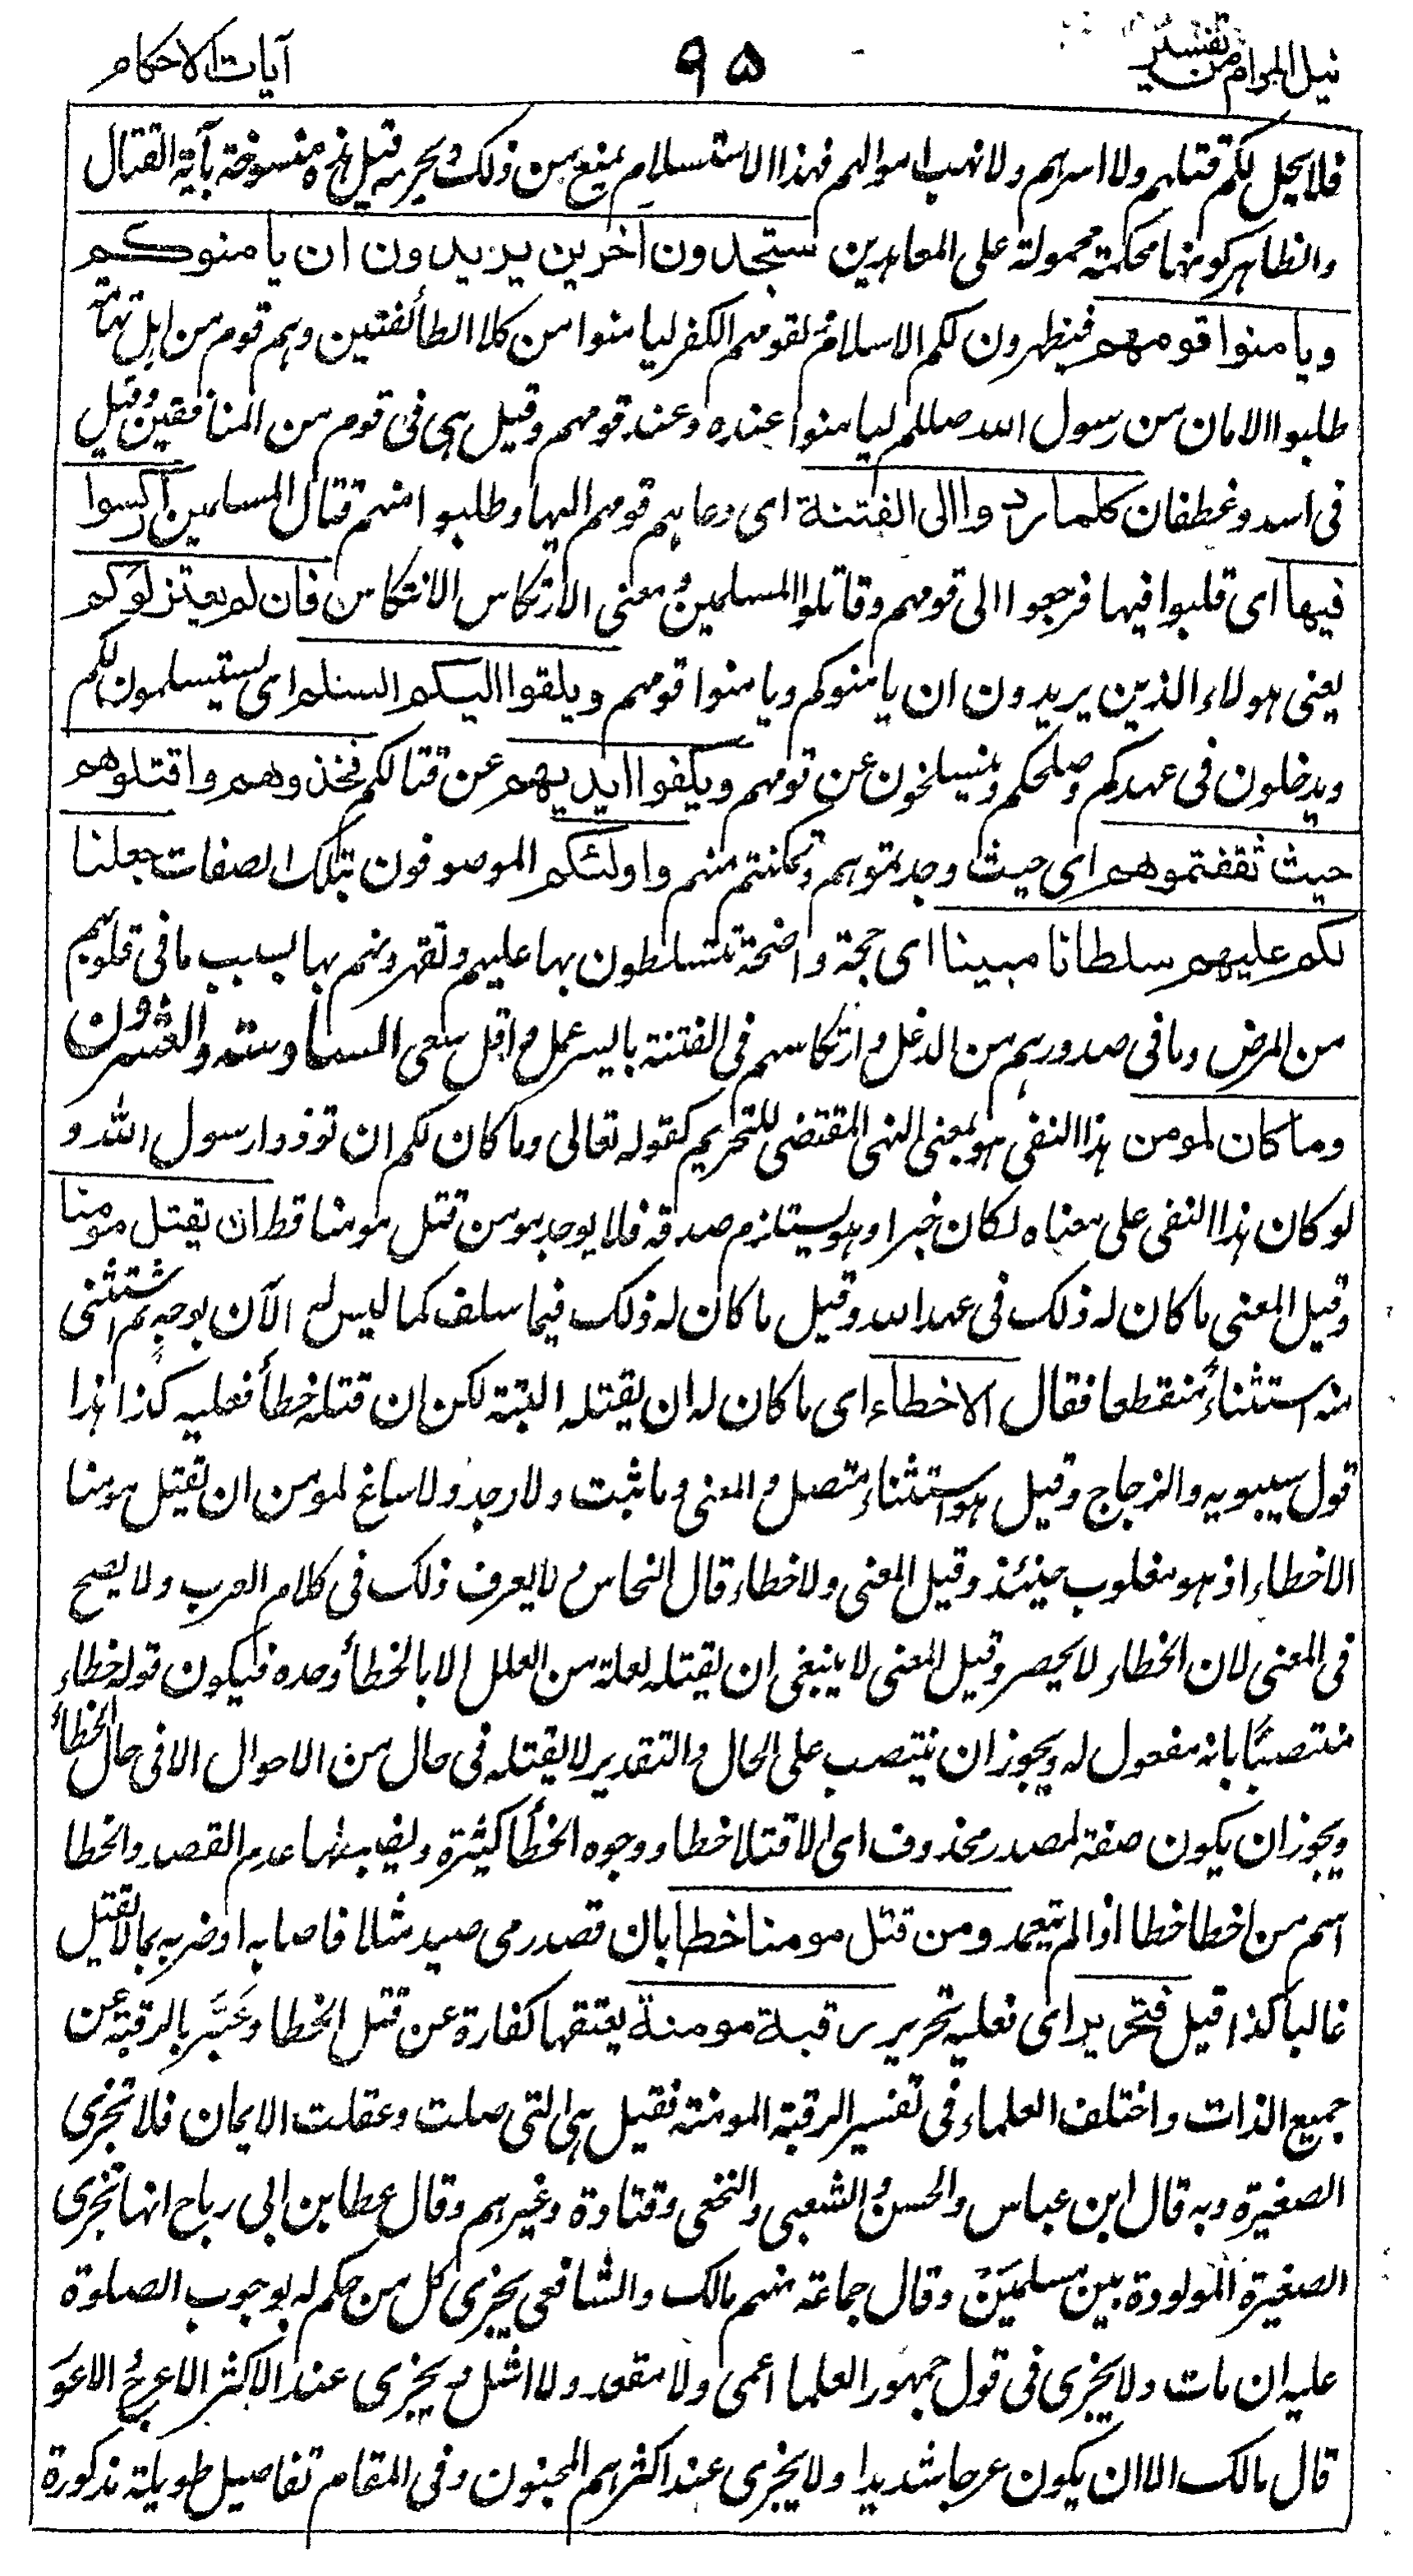 نيل المرام من تفسير ٩٥ آيات الاحكام
فلا يحل لكم قتلهم ولا اسرهم ولا نهب اموالهم فهذا الاستسلام يمنع من ذلك ويحرمه قيل هذه منسوخة بآية القتال
والظاهر كونها محكمة محمولة على المعاهدين ستجدون آخرين يريدون ان يامنوكم
ويامنوا قومهم فيظهرون لكم الاسلام ولقومهم الكفر ليامنوا من كلا الطائفتين وهم قوم من اهل تهامة
طلبوا الامان من رسول الله صللم ليامنوا عنده وعند قومهم وقيل هى فى قوم من المنافقين وقيل
فى اسد وغطفان كلما ردوا الى الفتنة اى دعاهم قومهم اليها وطلبوا منهم قتال المسلمين اركسوا
فيها اى قلبوا فيها فرجعوا الى قومهم وقاتلوا المسلمين ومعنى الارتكاس الانتكاس فان لم يعتزلوكم
يعنى هولاء الذين يريدون ان يامنوكم ويامنوا قومهم ويلقوا اليكم السلم اى يستسلمون لكم
ويدخلون فى عهدكم وصلحكم وينسلخون عن قومهم ويكفوا ايديهم عن قتالكم فخذوهم واقتلوهم
حيث ثقفتموهم اى حيث وجدتموهم وتمكنتم منهم واولئكم الموصوفون بتلك الصفات جعلنا
لكم عليهم سلطانا مبينا اى حجة واضحة تتسلطون بها عليهم وتقهرونهم بها بسبب ما فى قلوبهم
من المرض وما فى صدورهم من الدغل وارتكاسهم فى الفتنة بايسر عمل واقل سعى السادسة والعشرون
وما كان لمومن هذا النفى هو بمعنى النهى المقتضى للتحريم كقوله تعالى وما كان لكم ان توذوا رسول الله و
لو كان هذا النفى على معناه لكان خبرا وهو يستلزم صدقه فلا يوجد مومن قتل مومنا قط ان يقتل مومنا
وقيل المعنى ما كان له ذلك فى عهد الله وقيل ما كان له ذلك فيما سلف كما ليس له الآن بوجه ثم استثنى
منه استثناءً منقطعا فقال الا خطاء اى ما كان له ان يقتله البتة لكن ان قتله خطأ فعليه كذا هذا
قول سيبويه والزجاج وقيل هو استثناء متصل والمعنى وما ثبت ولا وجد ولا ساغ لمومن ان يقتل مومنا
الا خطاء اذ هو مغلوب حينئذ وقيل المعنى ولا خطاء قال النحاس ولا يعرف ذلك فى كلام العرب ولا يصح
فى المعنى لان الخطاء لا يحصر وقيل المعنى لا ينبغى ان يقتله لعلة من العلل الا بالخطأ وحده فيكون قوله خطاء
منتصبًا بانه مفعول له ويجوز ان ينتصب على الحال والتقدير لا يقتله فى حال من الاحوال الا فى حال الخطأ
ويجوز ان يكون صفة لمصدر محذوف اى الا قتلا خطا ووجوه الخطأ كثيرة ويضبطها عدم القصد والخطا
اسم من اخطا خطا اذا لم يتعمد ومن قتل مومنا خطا بان قصد رمى صيد مثلا فاصابه او ضربه بما لا يقتل
غالبا كذا قيل فتحرير اى فعليه تحرير رقبة مومنة يعتقها كفارة عن قتل الخطا وعَبَّر بالرقبة عن
جميع الذات واختلف العلماء فى تفسير الرقبة المومنة فقيل هى التى صلت وعقلت الايمان فلا تجزى
الصغيرة وبه قال ابن عباس والحسن والشعبى والنخعى وقتادة وغيرهم وقال عطا بن ابى رباح انها تجزى
الصغيرة المولودة بين مسلمَيْن وقال جماعة منهم مالك والشافعى يجزى كل من حكم له بوجوب الصلوة
عليه ان مات ولا يجزى فى قول جمهور العلما اعمى ولا مقعد ولا اشل ويجزى عند الاكثر الاعرج والاعور
قال مالك الا ان يكون عرجا شديدا ولا يجزى عند اكثرهم المجنون وفى المقام تفاصيل طويلة مذكورة